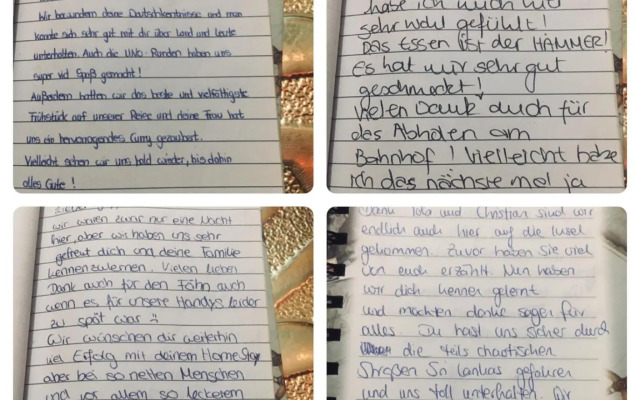 Wir bewundern deine Deutschkenntnisse und man
konnte sich sehr gut mit dir über Land und Leute
unterhalten. Auch die UNO-Runden haben uns
super viel Spaß gemacht!
Außerdem hatten wir das beste und vielfältigste
Frühstück auf unserer Reise und deine Frau hat
uns ein hervorragendes Curry gezaubert.
Vielleicht sehen wir uns bald wieder, bis dahin
alles Gute!
habe ich mich hier
sehr wohl gefühlt!
DAS ESSEN IST DER HAMMER!
Es hat mir sehr gut
geschmeckt!
Vielen Dank auch für
das Abholen am
Bahnhof! Vielleicht habe
ich das nächste mal ja
wir waren zwar nur eine Nacht
hier, aber wir haben uns sehr
gefreut dich und deine Familie
kennenzulernen. Vielen lieben
Dank auch für den Föhn auch
wenn es für unsere Handys leider
zu spät war :)
Wir wünschen dir weiterhin
viel Erfolg mit deinem HomeStay
aber bei so netten Menschen
und vor allem so leckerem
Dank und Christian sind wir
endlich auch hier auf die Insel
gekommen. Zuvor haben sie viel
von euch erzählt. Nun haben
wir dich kennen gelernt
und möchten danke sagen für
alles. Du hast uns sicher durch
die teils chaotischen
Straßen Sri Lankas gefahren
und uns toll unterhalten. Für